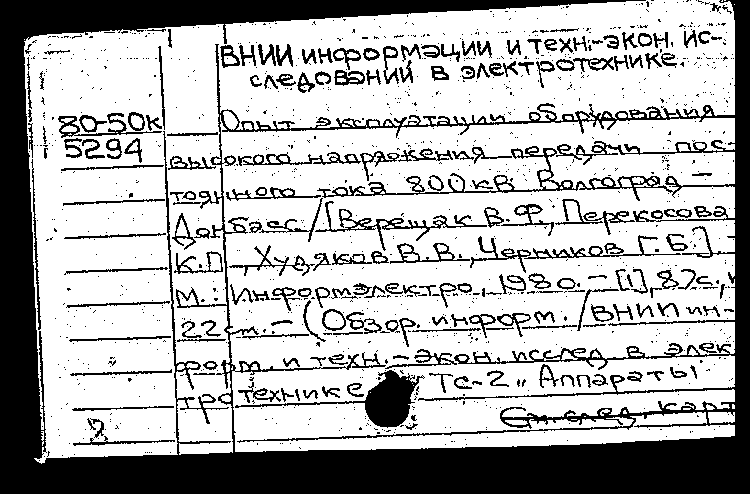 ВНИИ информации и техн.-экон. ис-
следований в электротехнике.
80-50к
5294
Опыт эксплуатации оборудования
высокого напряжения передачи пос-
тоянного тока 800кв Волгоград -
Донбасс. /[Верещак В.Ф., Перекосова
К.П., Худяков В.В., Черников Г.Б.]. -
М.: Информэлектро, 1980. - [1], 87с.,
22см. - (Обзор. информ. /ВНИИ ин-
форм. и техн.-экон. исслед. в элек
тротехнике
ТС-2, Аппараты
См. след. карт
2